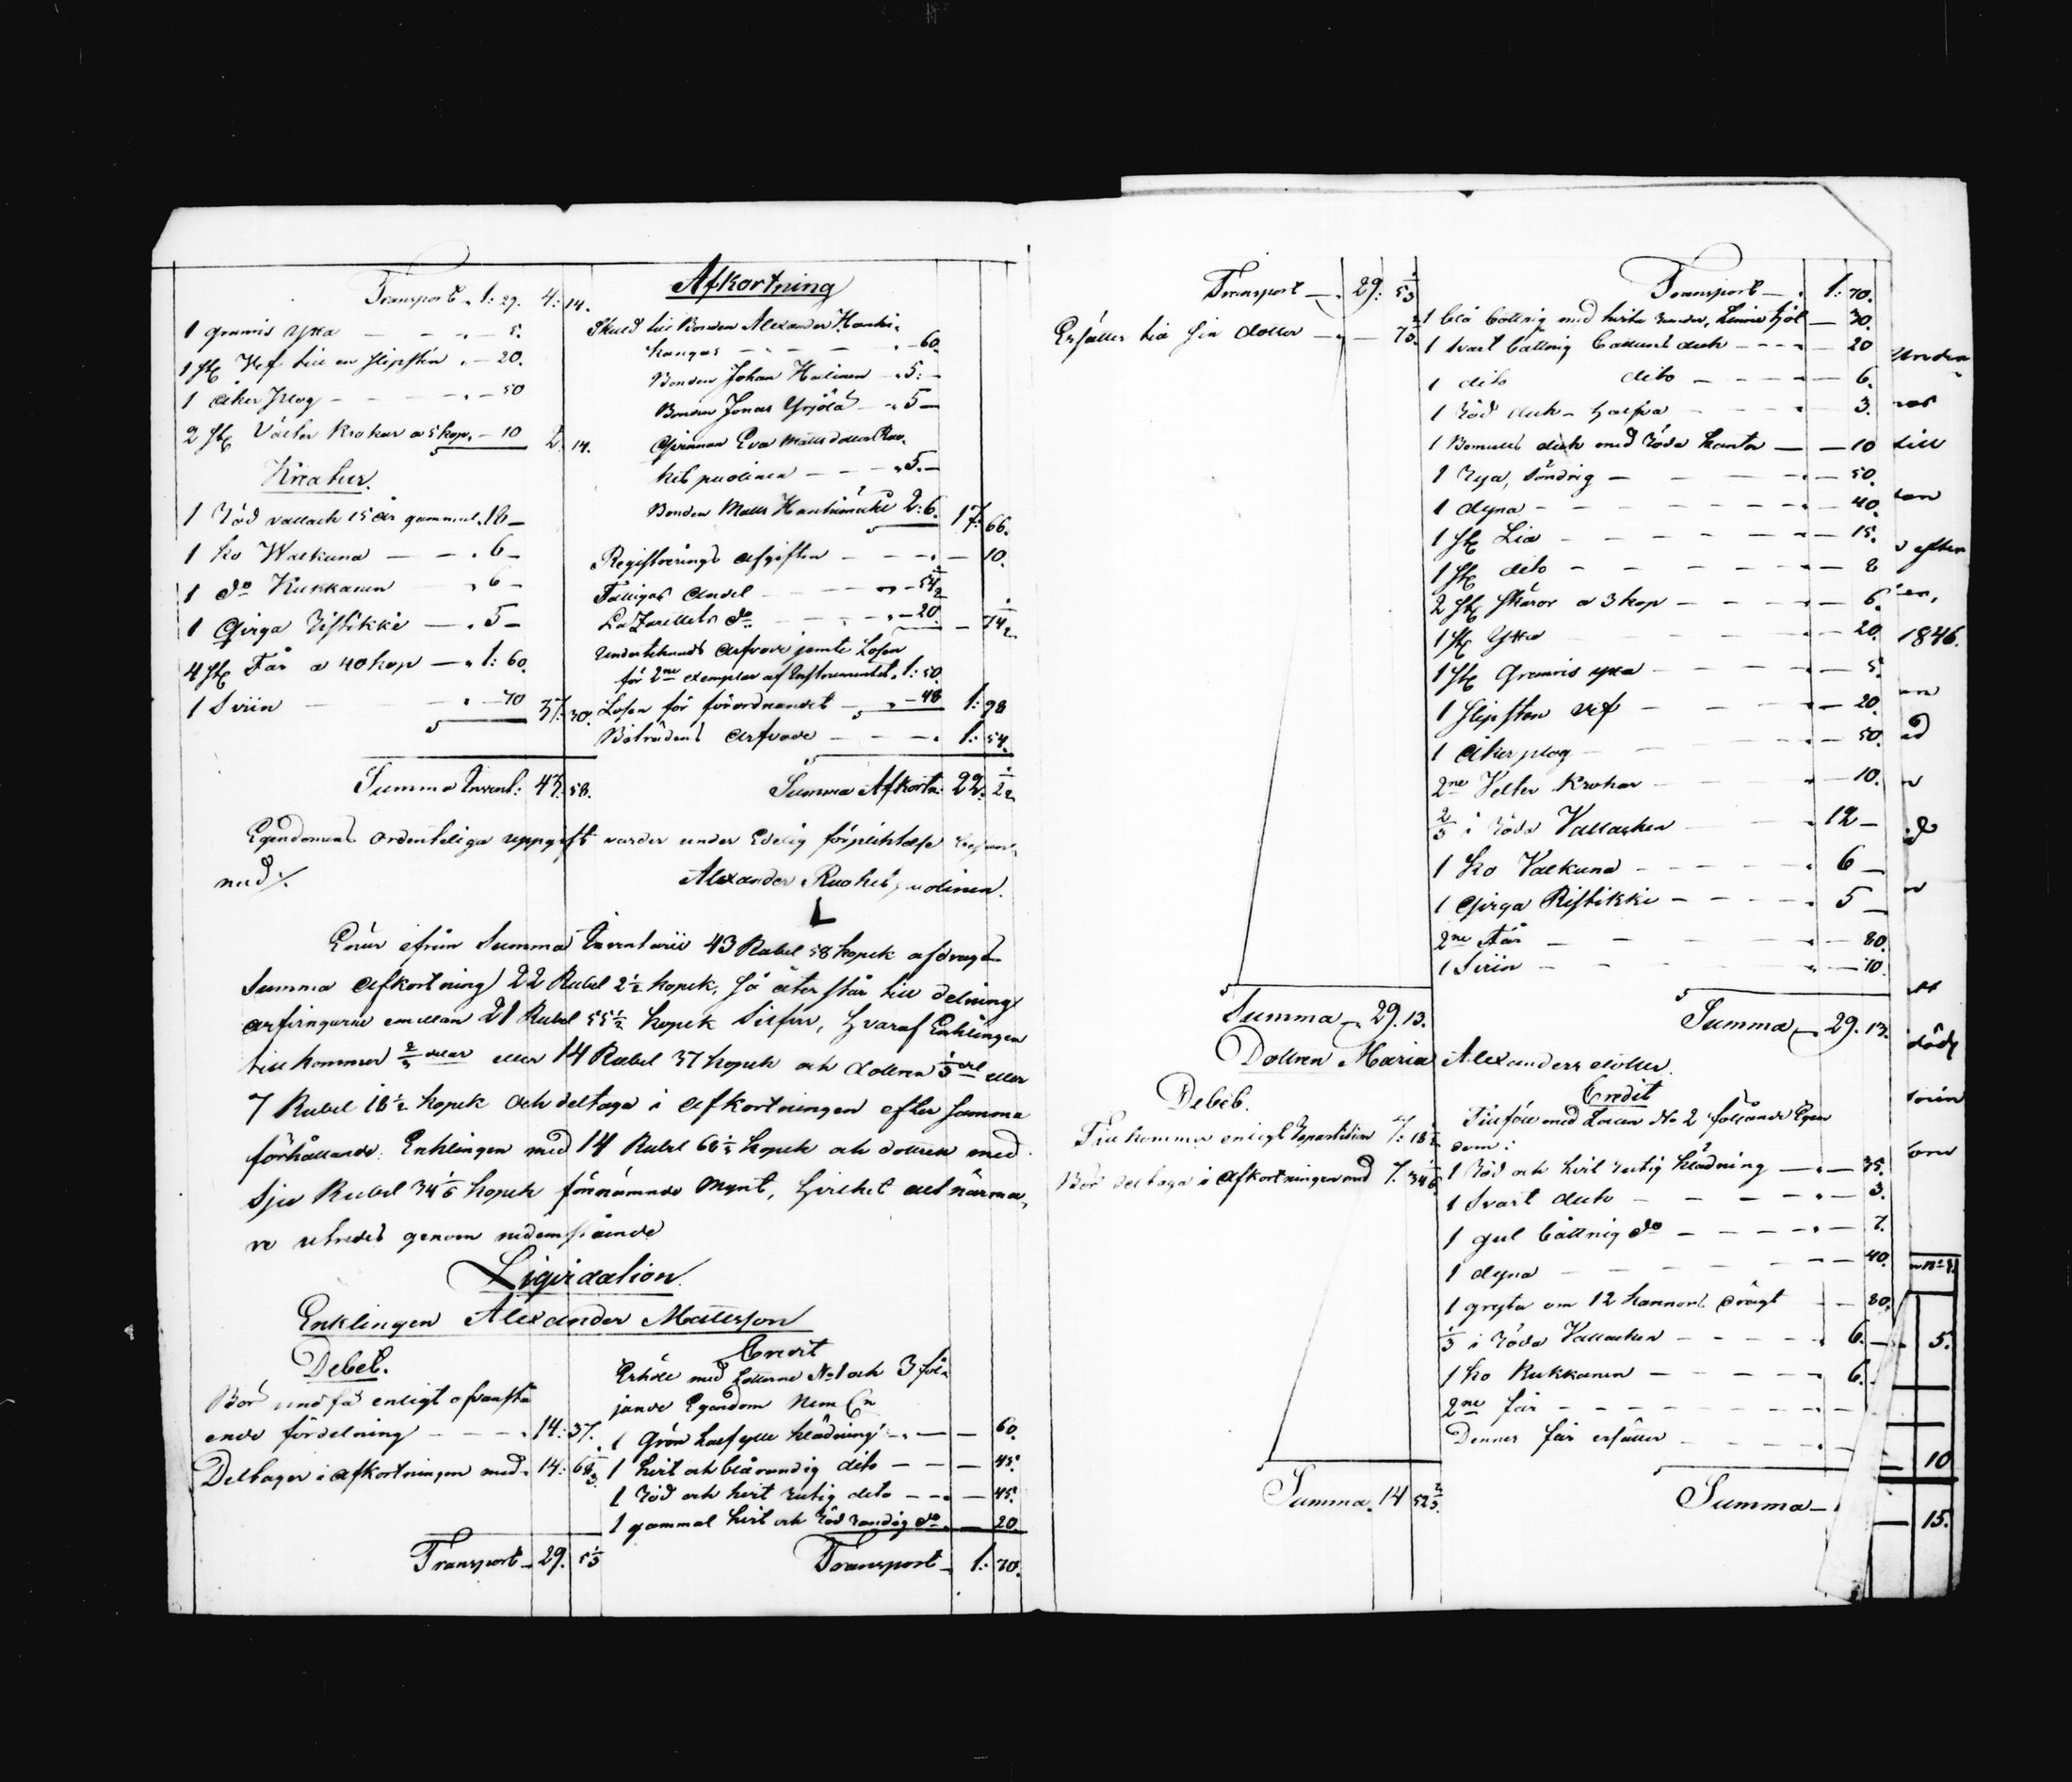 Transport „ 1: 29. 4: 14.
1 gramis yxa — — „ — 5.
1 st Vef till en slipsten „ — 20.
1 åker plog — — „ — 50
2 st Välter krokar a 5 kop. — 10 2. 14.
Kreatur.
1 Röd vallach 15 år gammal. 18 —
1 ko Walkuna — — „ 6 —
1 do Kukkanen „ 6 —
1 Qviga Ristikki — „ 5 —
4 st Får a 40 kop — „ 1: 60.
1 Sviin — „ — 70 37: 30.
Summa Invent: 43. 58.
Afkortning
Skuld till Bonden Alexander Hanhi-
kangas — — — „ — 60.
Bonden Johan Hulinen — „ 5: —
Bonden Jonas Yrjölä — „ 5 —
Qvinnan Eva Mattsdotter Ruo-
hispuolinen — — — „ 5. —
Bonden Matts Hanhimäki 2: 6. 17: 66.
Registrerings afgiften — — — „ — 10.
Fattigas andel — — „ — 54 1/2
Lazarettets do — — „ — 20. — 74 1/2
Undertecknads arfvode jemte Lösen
för 2ne exemplar af Instrumentet „ 1: 50.
Lösen för förordnandet — „ — 48 1: 98
Biträdens arfvode — — — „ 1: 54.
Summa Afkortn: 22. 2 1/2
Egendomens ordenteliga uppgift varder under Edelig förplichtelse
ned ./.
Alexander Ruohispuolinen.
L
Enär ifrån Summa Inventarii 43 Rubel 58 kopek afdrages
Summa afkortning 22 Rubel 2 1/2 kopek, så återstår till delning
arfvingarne emellan 21 Rubel 55 1/2 kopek Silfver, hvaraf Enklingen
tillkommer 2/3 delar eller 14 Rubel 37 kopek och dottren 1/3 del eller
7 Rubel 18 1/2 kopek och deltaga i afkortningen efter samma
förhållande: Enklingen med 14 Rubel 68 1/3 kopek och dottren med
Sju Rubel 34 1/6 kopek förenämnde mynt, hvilket allt närma-
re utredes genom nedanstående
Liqvidation.
Enklingen Alexander Mattsson
Debet.
Bör undfå enligt ofvanstå
ende fördelning — — — „ 14: 37.
Deltager i afkortningen med „ 14: 68 1/3
Transport — 29. 5 1/3
Credit
Erhöll med Lotterne No 1 och 3 föl-
jande Egendom Nem En
1 Grön half ylle klädning — „ — — 60.
1 hvit och blårandig dito — — — 45.
1 Röd och hvit rutig dito — — „ — 45.
1 gammal hvit och röd randig do „ — 20.
Transport — 1: 70.
Transport — „ 29: 5 1/3
Erfäller tid sin dotter — „ — 7 2/3.
Summa — „ 29. 13.
Transport — „ 1: 70.
1 blå bottnig med hvita ränder, Linne kjol — 30.
1 svart bottnig Cattuns duk — — — „ — 20
1 dito dito — — — — „ — 6.
1 röd duk — halfva — — — „ — 3.
1 Bomulls duk med röda kanter — — 10
1 Rya, söndrig — — — — „ — 50.
1 dyna — — — — — — „ — 40.
1 st Lia — — — — — „ — 15.
1 st dito — — — — — „ — 8
2 st skäror a 3 kop — — — „ — 6.
1 st Yxa — — — — — „ — 20.
1 st Gramis yxa — — — — „ — 5.
1 slipsten vef — — — — „ — 20.
1 åker plog — — — — „ — 50.
2ne Velter krokar — — — „ — 10.
2/3 i röda Vallachen — — „ 12 —
1 ko Valkuna — — — — „ 6 —
1 Qviga Ristikki — — — — „ 5 —
2ne Får — — — — „ — 80.
1 Sviin — — — — „ — 70.
Summa — „ 29. 13.
Dottren Maria Alexandersdotter.
Debet.
Tillkommer enligt repartition 7: 18 1/2
Bör deltaga i afkortningen med 7. 34 1/6
Summa. 14 52 2/3.
Credit
Tillföll med Lotten No 2 följande Egen
dom:
1 Röd och hvit rutig klädning — „ — 35.
1 Svart duk — — — — „ — 3.
1 gul bottnig do — — — — „ — 7.
1 dyna — — — — — „ — 40.
1 gryta om 12 kannors drägt — — 80.
1/3 i röda Vallachen — — — — „ 6. —
1 ko Kukkanen — — — — „ 6.
2ne får — — — — — „ —
Denner får erfäller — — — — „ —
Summa —
till
efter
1846.
5.
10
15.